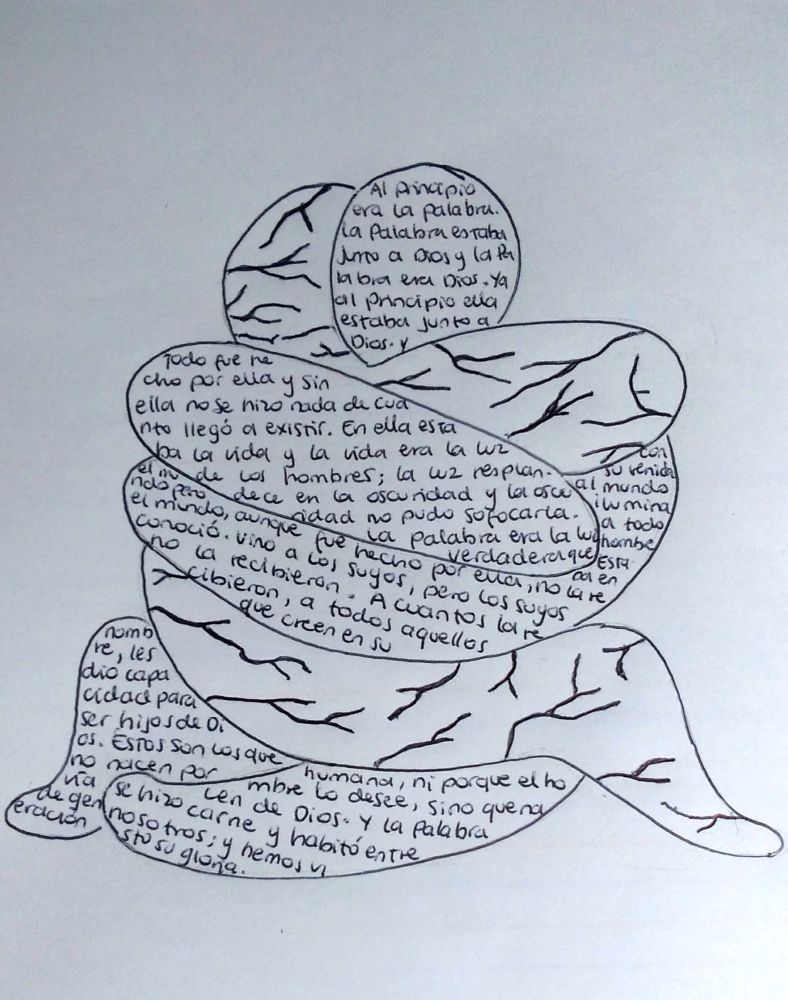 Al principio
era la palabra.
la palabra estaba
junto a Dios y la Pa
labra era Dios. Ya
al principio ella
estaba junto a
Dios. y
Todo fue he
cho por ella y sin
ella no se hizo nada de cua
nto llegó a existir. En ella esta
ba la vida y la vida era la luz
de los hombres; la luz resplan.
dece en la oscuridad y la oscu
ridad no pudo sofocarla.
la palabra era la luz
verdadera que
con
su venida
al mundo
ilumina
a todo
hombre
Esta
ba en
el mu
ndo pero
el mundo, aunque fue hecho por ella, no la re
conoció. vino a los suyos, pero los suyos
no la recibieron. A cuantos la re
cibieron, a todos aquellos
que creen en su
nomb
re, les
dio capa
cidad para
ser hijos de Di
os. Estos son los que
no nacen por
vía
de gen
eración
humana, ni porque el ho
mbre lo desee, sino que na
cen de Dios. Y la Palabra
se hizo carne y habitó entre
nosotros; y hemos vi
sto su gloria.